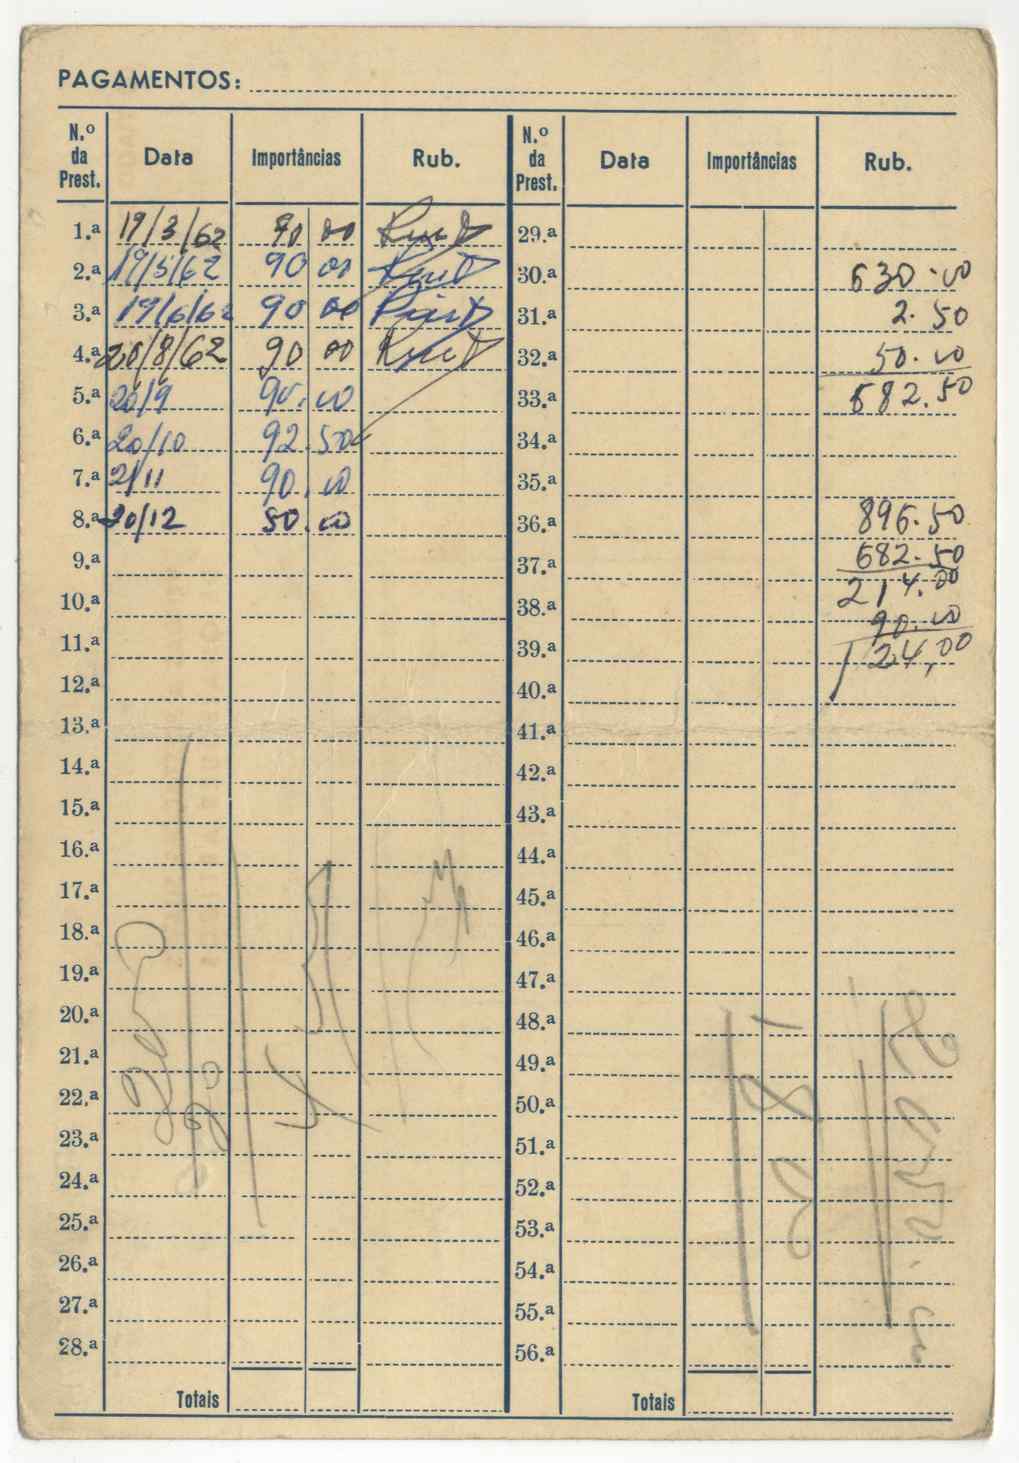 PAGAMENTOS:
N.º da Prest. Data Importâncias Rub.
1.ª 19/3/62 90 00
2.ª 19/5/62 90 00
3.ª 19/6/62 90 00
4.ª 20/8/62 90 00
5.ª 20/9 90.00
6.ª 20/10 92.50
7.ª 21/11 90.00
8.ª 20/12 50.00
9.ª
10.ª
11.ª
12.ª
13.ª
14.ª
15.ª
16.ª
17.ª
18.ª
19.ª
20.ª
21.ª
22.ª
23.ª
24.ª
25.ª
26.ª
27.ª
28.ª
Totais
N.º da Prest. Data Importâncias Rub.
29.ª
30.ª 630.00
31.ª 2.50
32.ª 50.00
33.ª 682.50
34.ª
35.ª
36.ª 896.50
37.ª 682.50
38.ª 214.00
90.00
39.ª 124,00
40.ª
41.ª
42.ª
43.ª
44.ª
45.ª
46.ª
47.ª
48.ª
49.ª
50.ª
51.ª
52.ª
53.ª
54.ª
55.ª
56.ª
Totais